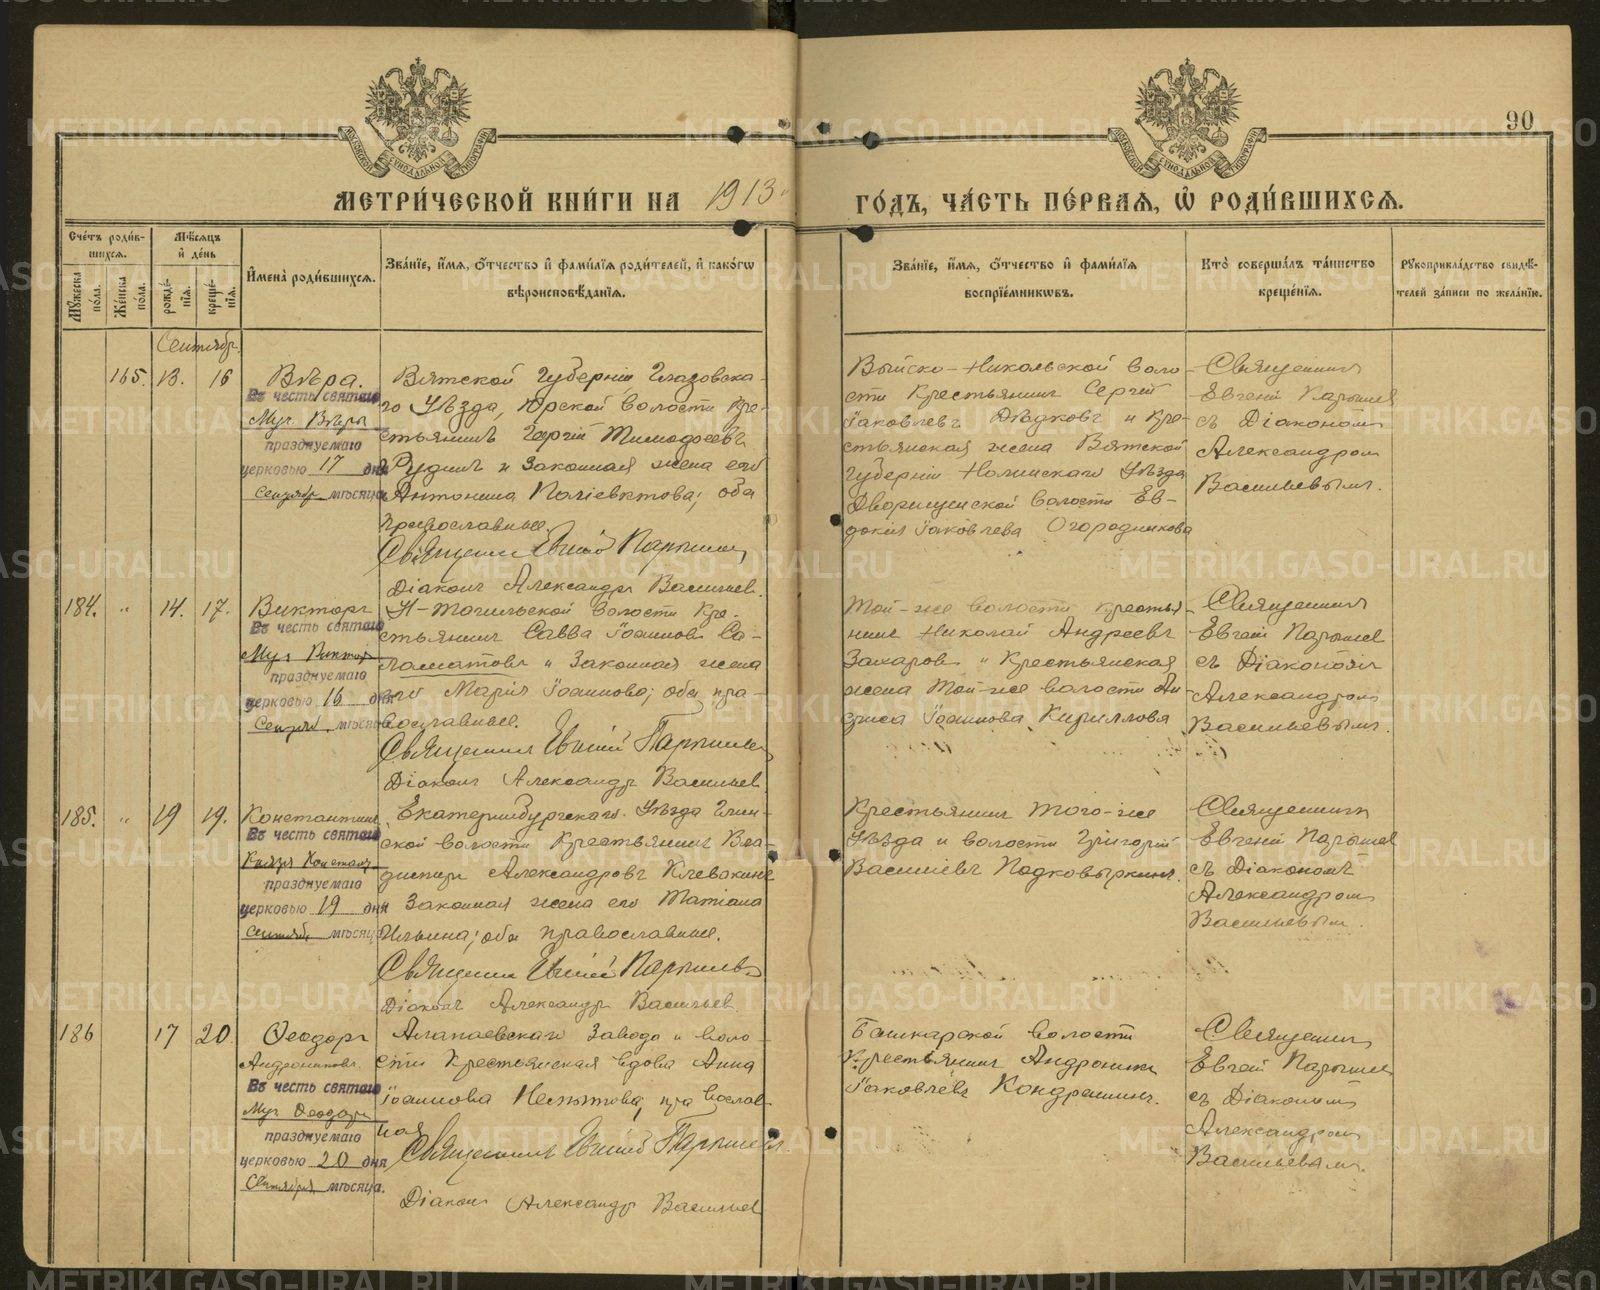 90
МЕТРИ́ЧЕСКОЙ КНИ́ГИ НА 1913
ГО́ДЪ, ЧА́СТЬ ПЕ́РВАЯ, Ѡ РОДИ́ВШИХСЯ.
Сче́тъ роди́в-
шихся.
Мꙋжеска по́ла.
Же́нска по́ла.
Мѣ́сяцъ и де́нь
рожде́-
нїя.
креще́-
нїя.
Имена̀ роди́вшихся.
Зва́нїе, и́мя, о́тчество и фами́лїя роди́телей, и како́гѡ
вѣроисповѣ́данїя.
Зва́нїе, и́мя, о́тчество и фами́лїя
воспрїе́мникѡвъ.
Кто̀ соверша́лъ та́инство
креще́нїя.
Рꙋкоприкла́дство свидѣ́-
телей за́писи по жела́нїю.
Сентябр
165. 13. 16
Вѣра.
Въ честь святаго
Муч. Вѣры
празднуемаго
церковью 17 дня
Сентябр мѣсяца
Вятской Губерніи Глазовска-
го Уѣзда, Юрской волости Кре-
стьянинъ Георгій Тимофеевъ
Рудинъ и законная жена его
Антонина Поліевктова; оба
православные.
Священник Евгеній Парышевъ
Діаконъ Александръ Васильев.
Выйско-Никольской воло-
сти Крестьянинъ Сергій
Іаковлевъ Дѣдковъ и Кре-
стьянская жена Вятской
Губерніи Нолинскаго Уѣзда
волости Ев-
докія Іаковлева Огородникова
Священник
Евгеній Парышев
съ Діакономъ
Александром
Васильевымъ.
184. " 14. 17.
Викторъ
Въ честь святаго
Муч Виктор
празднуемаго
церковью 16 дня
Сентяб. мѣсяца
Н-Тагильской волости Кре-
стьянинъ Савва Іоаннов Са-
ламатовъ и законная жена
его Марія Іоаннова; оба пра-
вославные.
Священник Евгеній Парышевъ
Діаконъ Александръ Васильев
Той-же волости крестья-
нинъ Николай Андреевъ
Захаров и Крестьянская
жена той-же волости Ан-
фиса Іоаннова Кириллова
Священник
Евгеній Парышев
съ Діакономъ
Александром
Васильевымъ.
185. " 19 19.
Константинъ
Въ честь святаго
Князя Констант
празднуемаго
церковью 19 дня
Сентябр мѣсяца
Екатеринбургскаго Уѣзда Глин-
ской волости Крестьянинъ Вла-
димиръ Александровъ Клевакинъ
и Законная жена его Татіана
Ильина; оба православные.
Священник Евгеній Парышевъ
Діаконъ Александръ Васильев
Крестьянинъ того-же
Уѣзда и волости Григорій
Василіевъ Подковыркинъ.
Священник
Евгеній Парышев
съ Діакономъ
Александром
Васильевым.
186 17 20
Ѳеодоръ
Андрониковъ
Въ честь святаго
Муч Ѳеодора
празднуемаго
церковью 20 дня
Сентября мѣсяца.
Алапаевскаго Завода и воло-
сти Крестьянская вдова Анна
Іоаннова православ-
ная
Священникъ Евгеній Парышевъ
Діаконъ Александръ Васильев
Башкарской волости
Крестьянинъ Андроник
Іаковлевъ Кондрашинъ.
Священник
Евгеній Парышев
съ Діакономъ
Александром
Васильевым.
METRIKI.GASO-URAL.RU